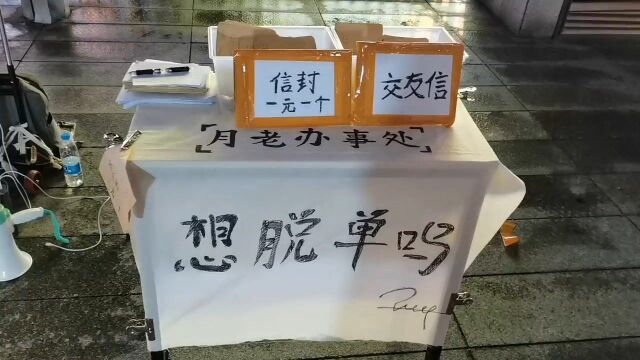 信封
一元一个
交友信
「月老办事处」
想脱单吗